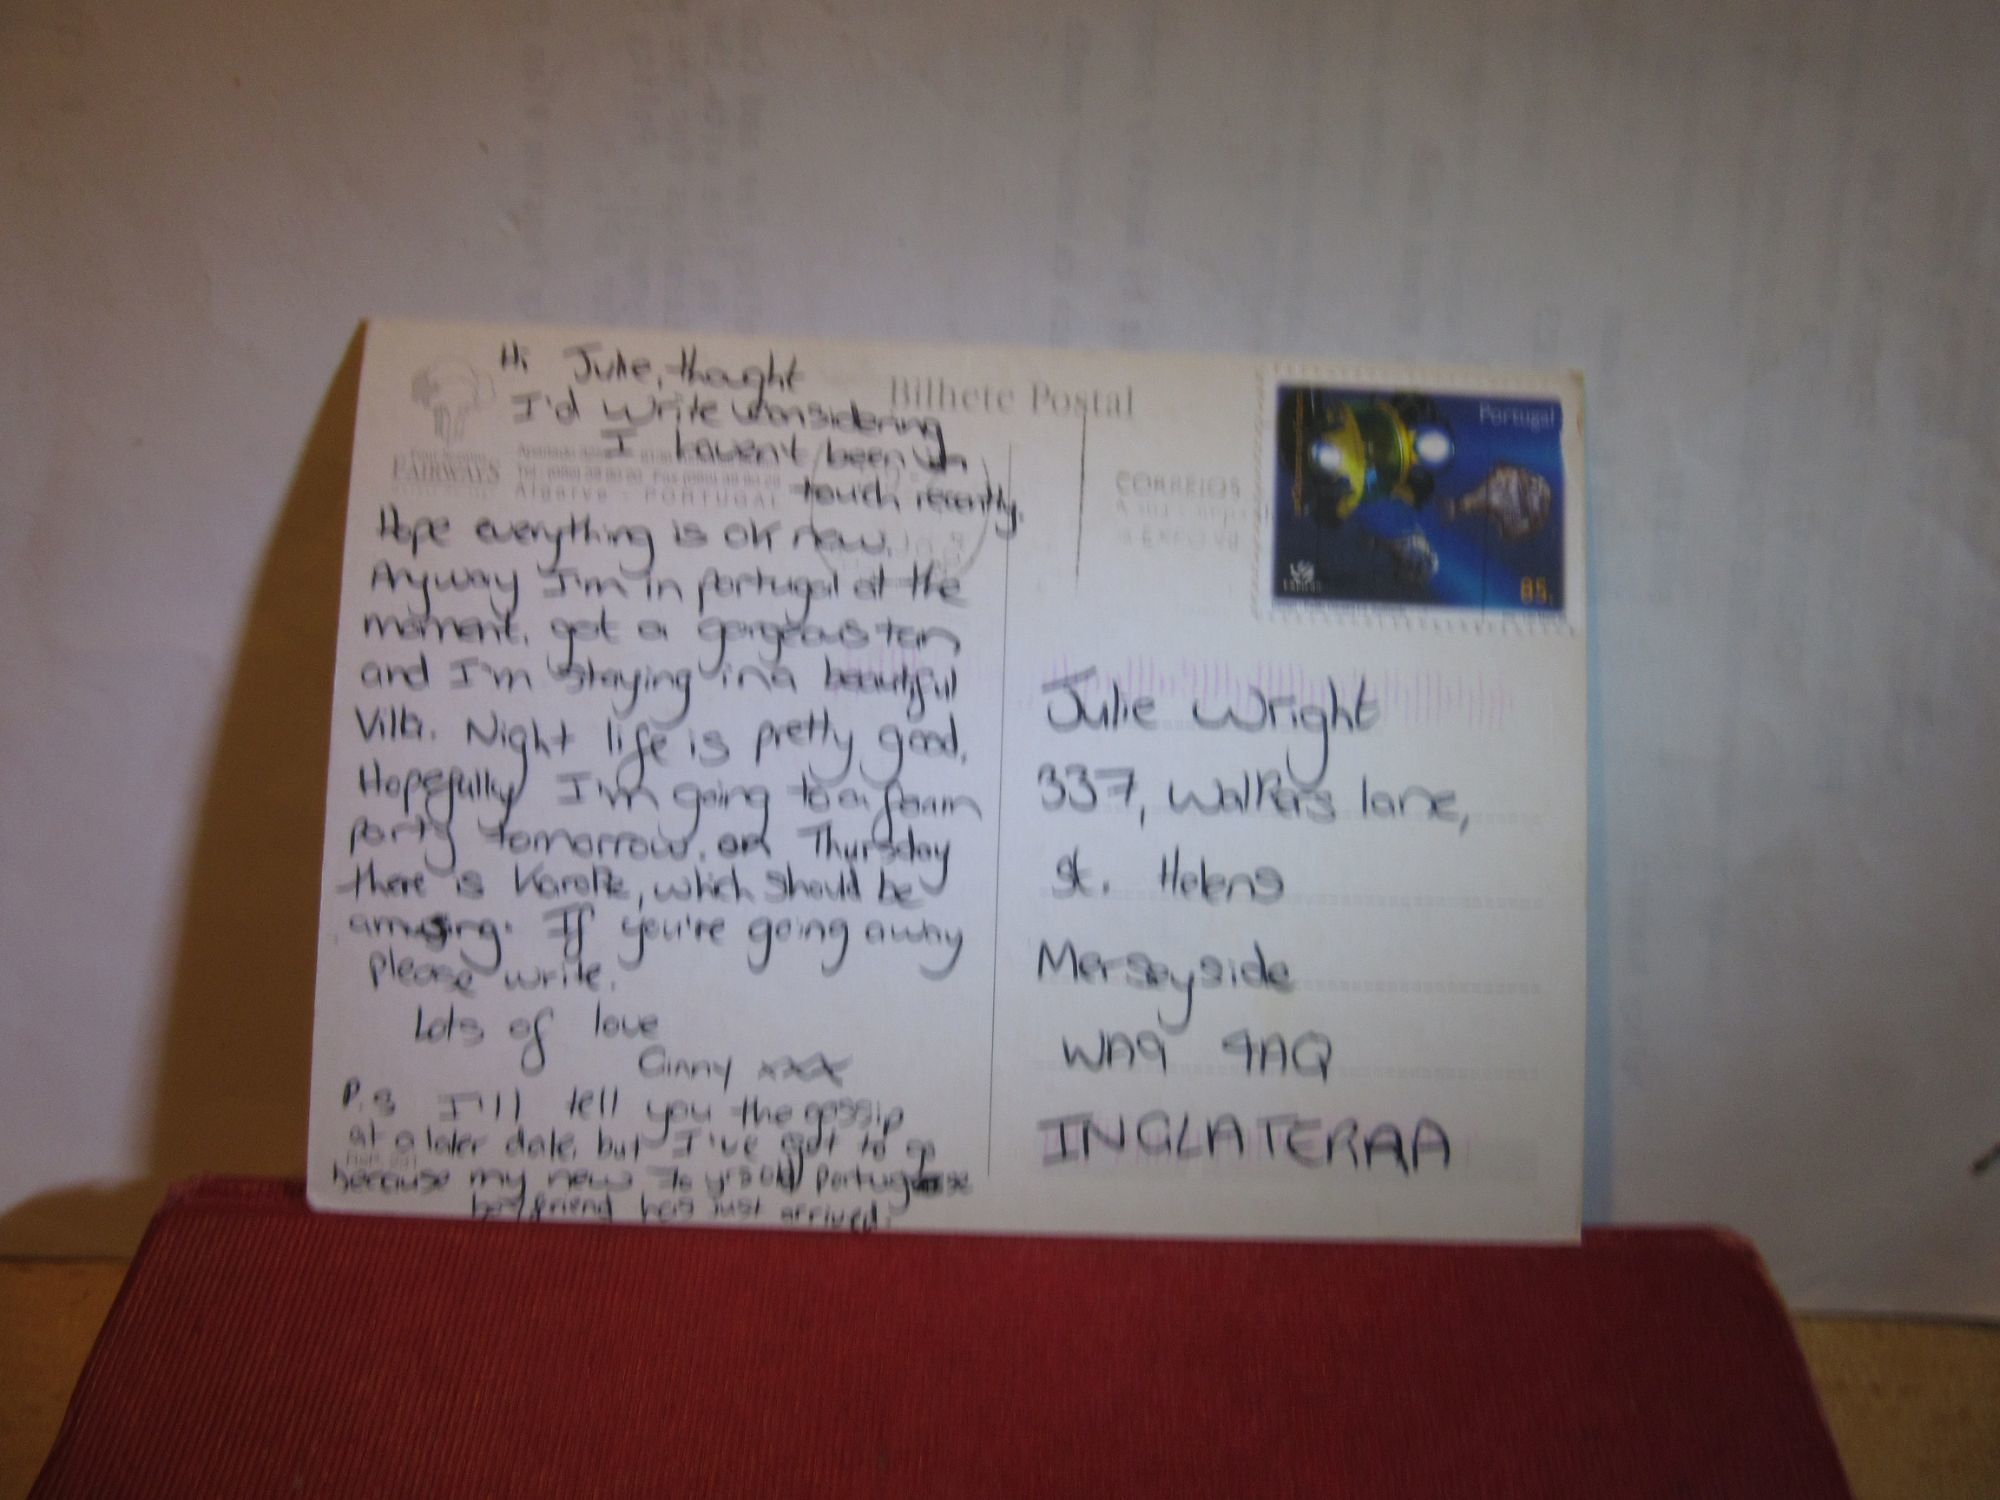 Hi Julie, thought
I'd write considering
I haven't been in
touch recently.
Hope everything is ok now.
Anyway I'm in portugal at the
moment, got a gorgeous tan
and I'm staying in a beautiful
Villa. Night life is pretty good.
Hopefully I'm going to a foam
party tomorrow, on Thursday
there is Karaoke, which should be
amusing. If you're going away
please write.
Lots of love
Ginny xxx
P.S I'll tell you the gossip
at a later date, but I've got to go
because my new 70 yr old Portuguese
boyfriend has just arrived.
Bilhete Postal
FAIRWAYS
Algarve - PORTUGAL
CORREIOS
Portugal
85.
Julie Wright
337, Walkers lane,
St. Helens
Merseyside
WA9 4AQ
INGLATERAA